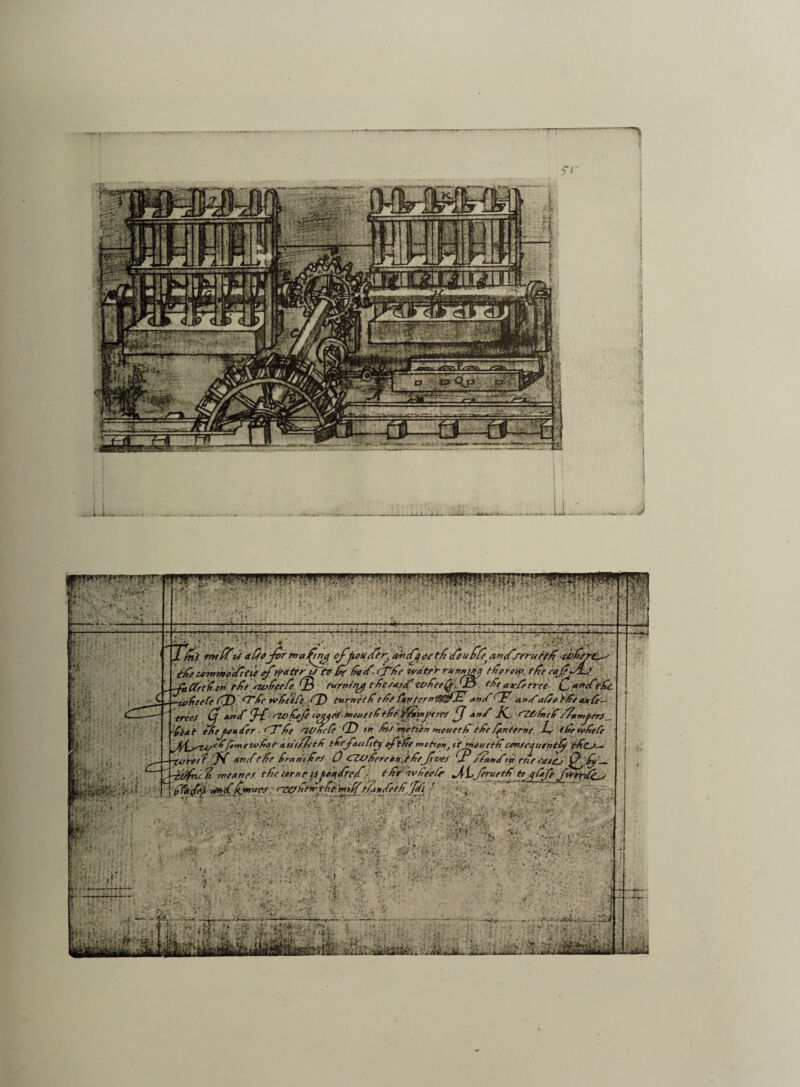 51
This mill is also for making of pouder, and goeth double, and serueth where
the commoditie of water is to be had. The water running therow the
falleth on the wheele B turning the said wheele B the axletree C and the
wheele D The wheele D turneth the lanterns E and F and also the axle-
trees G and H whose cogges moueth the stampers J and K which stampers
beat the pouder. The wheele D in his motion moueth the lanterne L the wheele
M which somewhat assisteth the facility of the motion, it moueth consequently the
N and the branches O Whereon the siues P stand in the case Q by
which meanes the corne is pondred: the wheele M serueth to
blades and kniues when the mill standeth